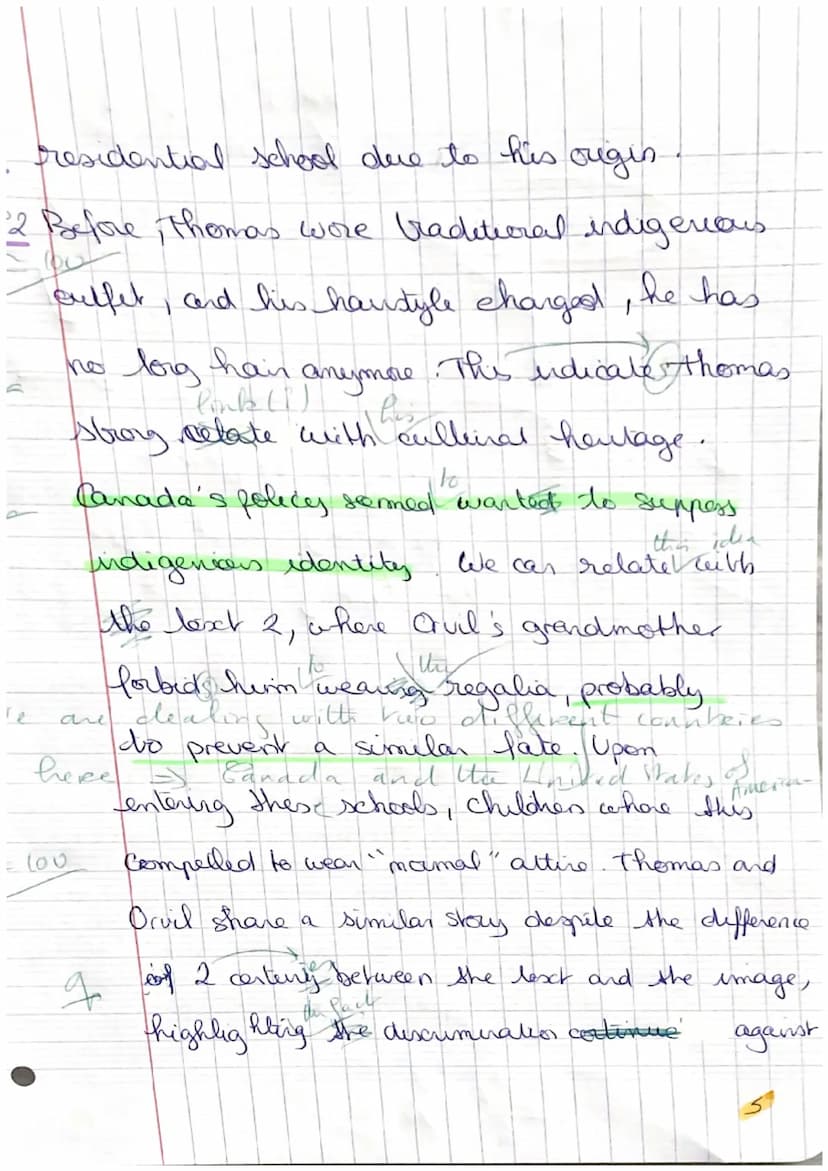 residential school due to his origin.
2 Before, Thomas wore traditional indigenous
outfit, and his hairstyle changed, he has
no long hair anymore. This indicate Thomas
link (i) his
strong relate with cultural heritage.
to
Canada's policy seemed wanted to suppress
this idea
indigenious identity. We can relate with
the text 2, where Orvil's grandmother
to the
forbids him wearing regalia, probably
are dealing with two different countries
to prevent a similar fate. Upon
here => Canada and the United States of America
entering these schools, children whore this
compelled to wear "normal" attire. Thomas and
Orvil share a similar story despite the difference
of 2 century between the text and the image,
the fact
highlighting the discrimination continue against
5